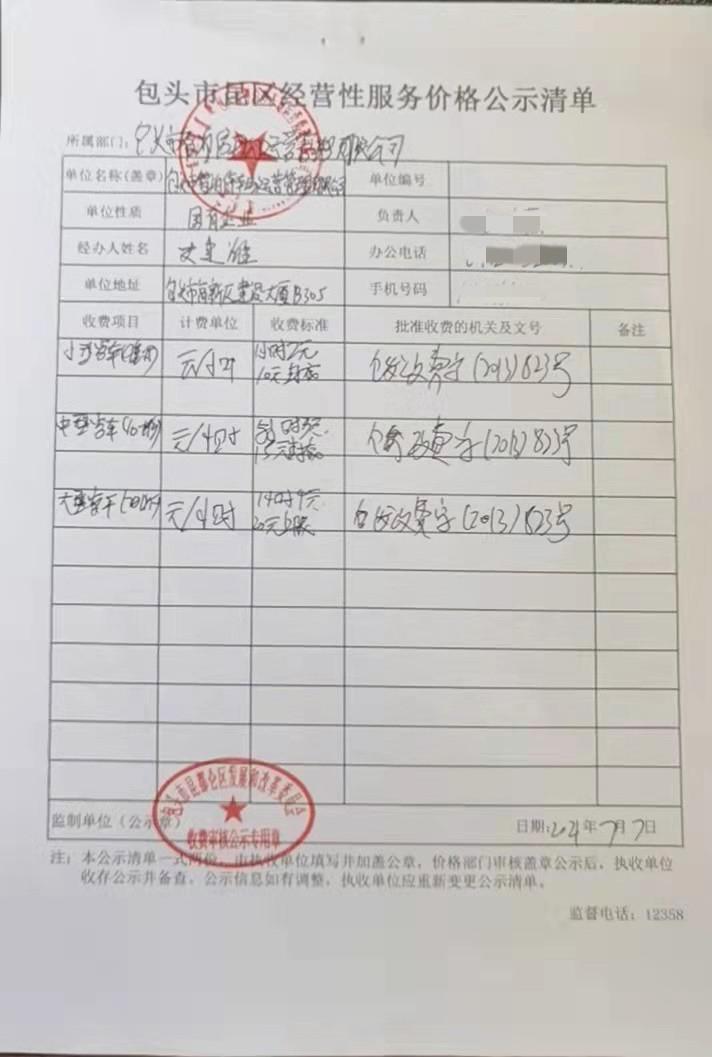 包头市昆区经营性服务价格公示清单
所属部门: 包头市 运营管理有限公司
单位名称(盖章) 包头市 运营管理有限公司 单位编号
单位性质 国有企业 负责人
经办人姓名 办公电话
单位地址 包头市 建设大厦B305 手机号码
收费项目 计费单位 收费标准 批准收费的机关及文号 备注
小型客车 元/小时 1小时2元 包发改费字(2013)823号
10元封顶
中型客车 元/小时 包发改费字(2013)823号
15元封顶
大型客车 元/小时 1小时4元 包发改费字(2013)823号
20元
包头市昆都仑区发展和改革委员会
收费审核公示专用章
监制单位(公示章) 日期:2021年7月7日
注:本公示清单一式两份,由执收单位填写并加盖公章,价格部门审核盖章公示后,执收单位
收存公示并备查,公示信息如有调整,执收单位应重新变更公示清单。
监督电话:12358